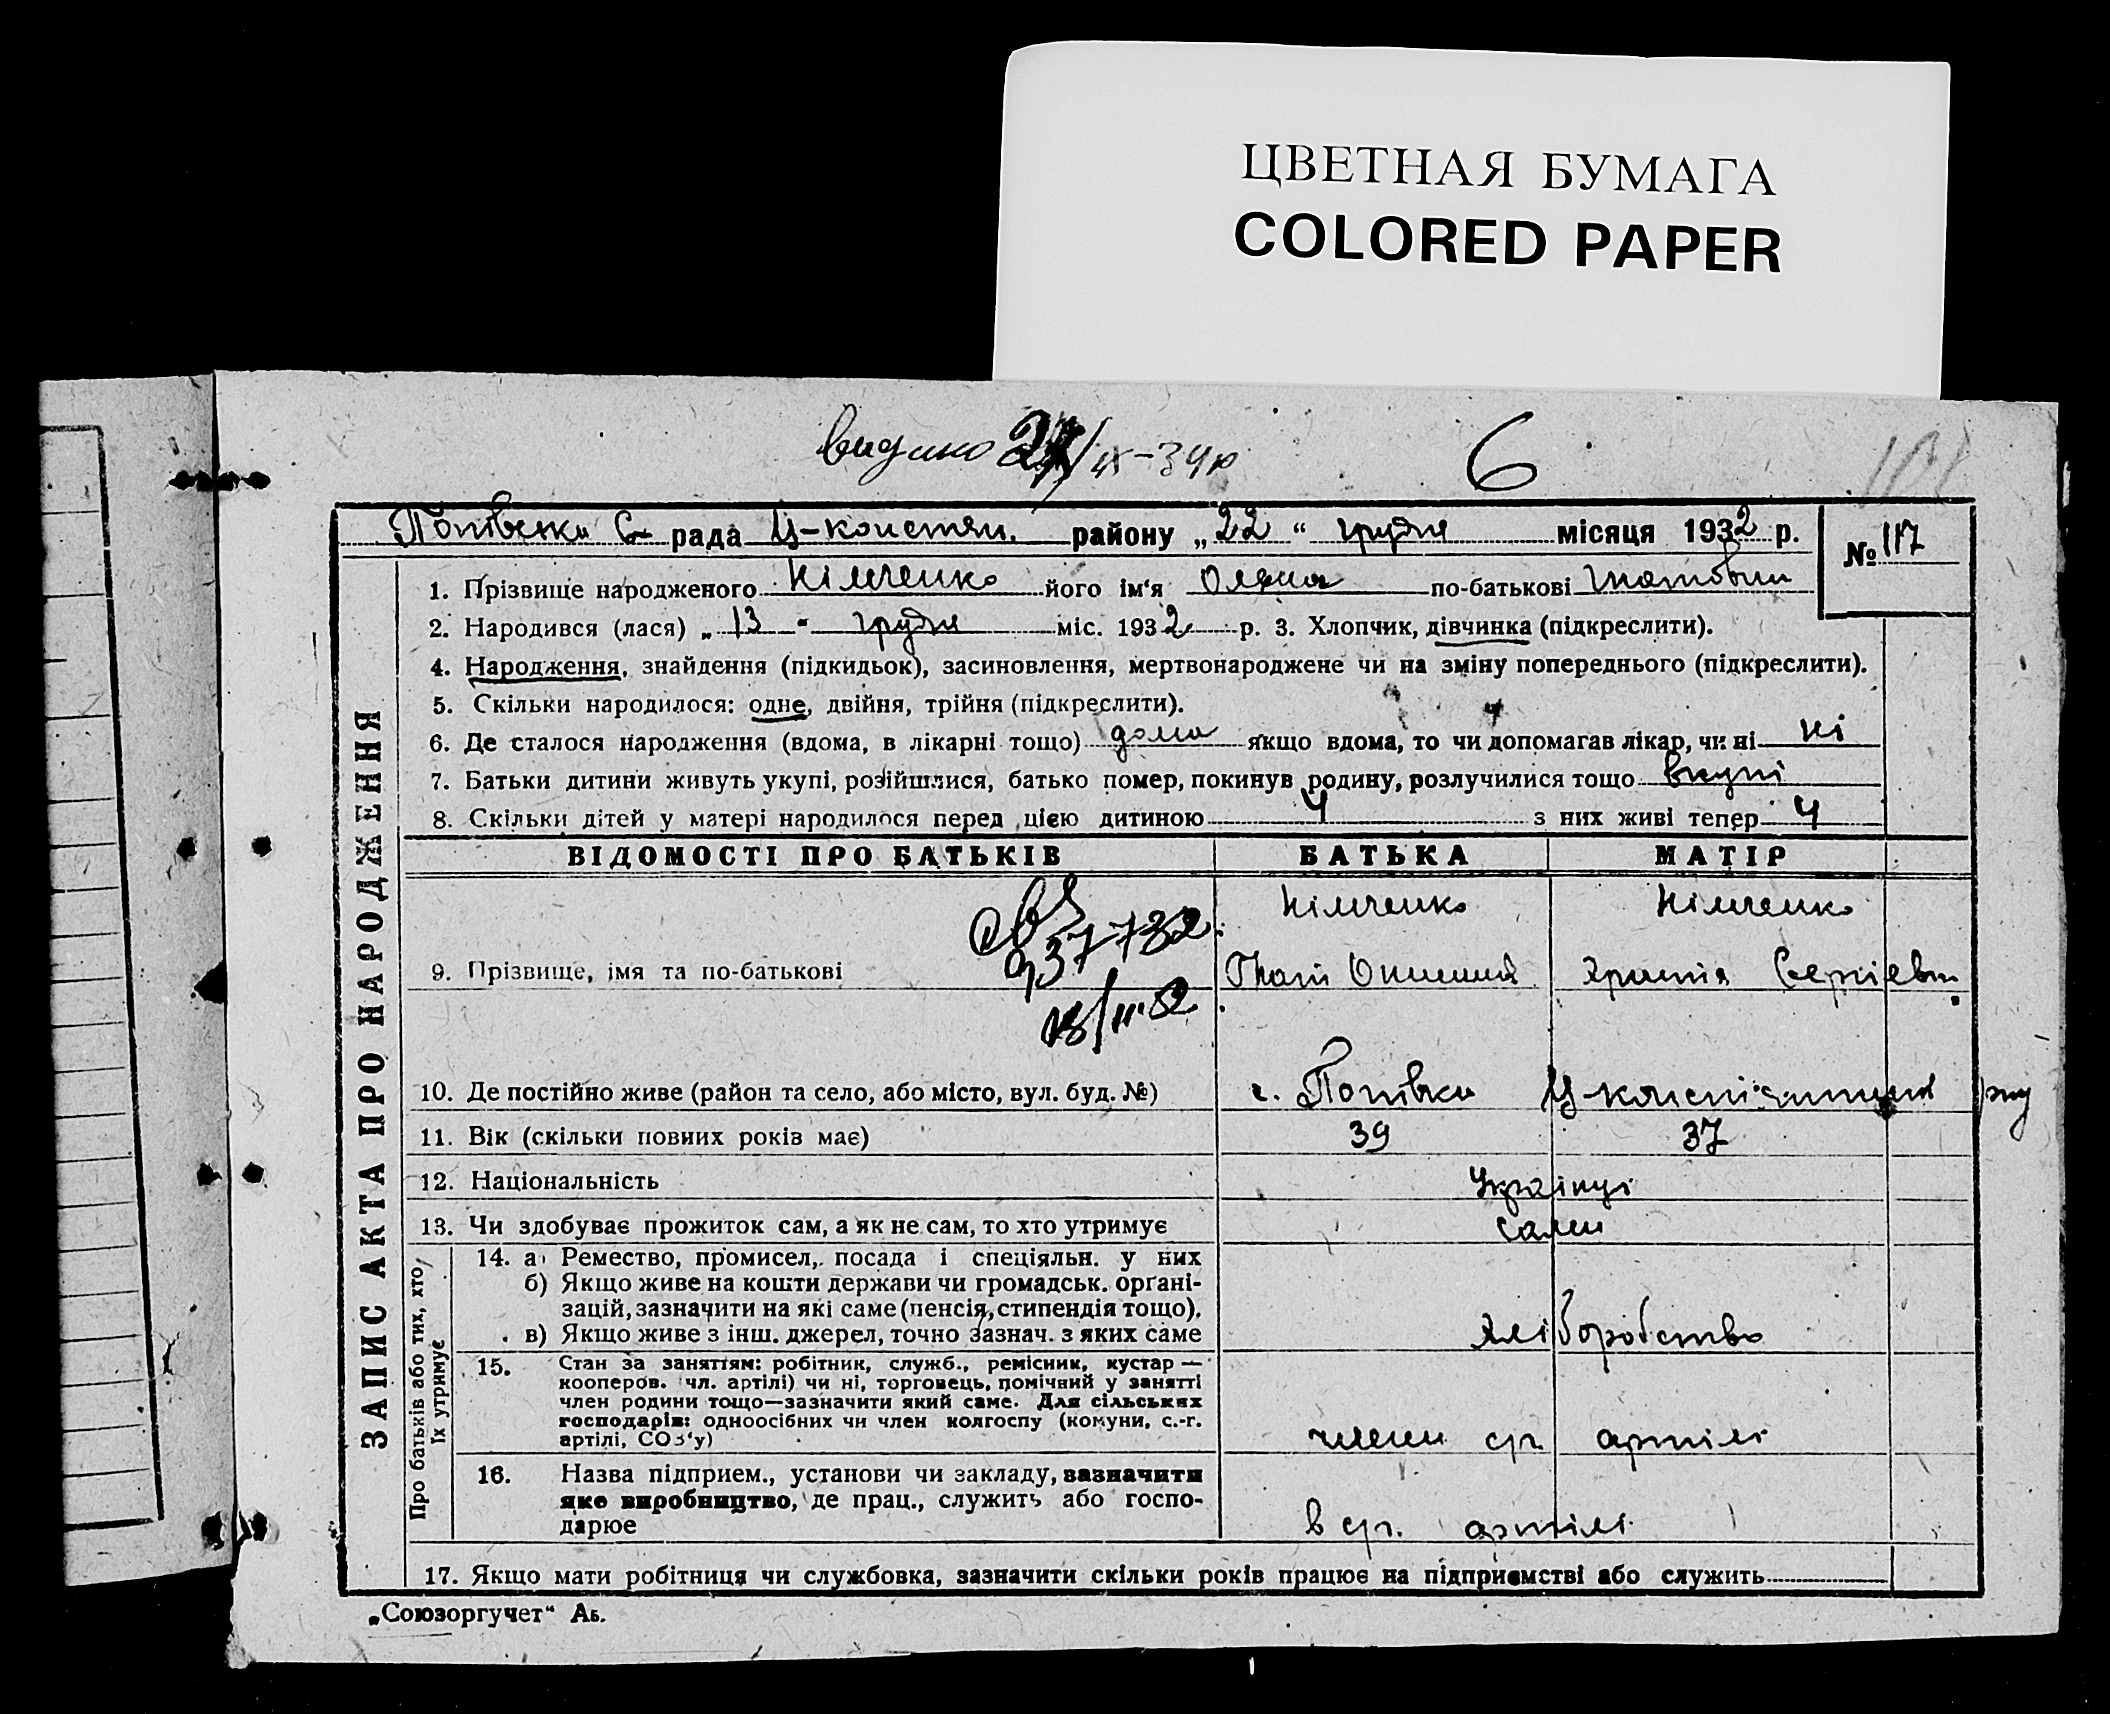 ЦВЕТНАЯ БУМАГА
COLORED PAPER
видано /ІХ-34р
6
Попівська С рада Ц-констян. району „22“ грудня місяця 1932 р.
№ 117
1. Прізвище народженого Німченко його ім‘я Олена по-батькові Гнатовни
2. Народився (лася) „13“ грудня міс. 1932 р. 3. Хлопчик, дівчинка (підкреслити).
4. Народження, знайдення (підкидьок), засиновлення, мертвонароджене чи на зміну попереднього (підкреслити).
5. Скільки народилося: одне, двійня, трійня (підкреслити).
6. Де сталося народження (вдома, в лікарні тощо) дома якщо вдома, то чи допомагав лікар, чи ні ні
7. Батьки дитини живуть укупі, розійшлися, батько помер, покинув родину, розлучилися тощо вкупі
8. Скільки дітей у матері народилося перед цією дитиною 4 з них живі тепер 4
ЗАПИС АКТА ПРО НАРОДЖЕННЯ
ВІДОМОСТІ ПРО БАТЬКІВ БАТЬКА МАТІР
Німченко Німченко
937732
9. Прізвище, імя та по-батькові Гнат Христя Сергієвн
10. Де постійно живе (район та село, або місто, вул. буд. №) с. Попівка р-ну
11. Вік (скільки повних років має) 39 37
12. Національність Українці
13. Чи здобуває прожиток сам, а як не сам, то хто утримує сами
Про батьків або тих, хто
їх утримує
14. а) Ремество, промисел, посада і спеціяльн. у них
б) Якщо живе на кошти держави чи громадськ. орґані-
зацій, зазначити на які саме (пенсія, стипендія тощо).
в) Якщо живе з інш. джерел, точно зазнач. з яких саме хліборобство
15. Стан за заняттям: робітник, служб., ремісник, кустар —
кооперов. чл. артілі) чи ні, торговець, помічний у занятті
член родини тощо—зазначити який саме. Для сільських
господарів: одноосібних чи член колгоспу (комуни, с.-г.
артілі, СОЗ‘у) члени с/г артілі
16. Назва підприєм., установи чи закладу, зазначити
яке виробництво, де прац., служить або госпо-
дарює в с/г. артілі
17. Якщо мати робітниця чи службовка, зазначити скільки років працює на підприємстві або служить
„Союзоргучет“ Аь.